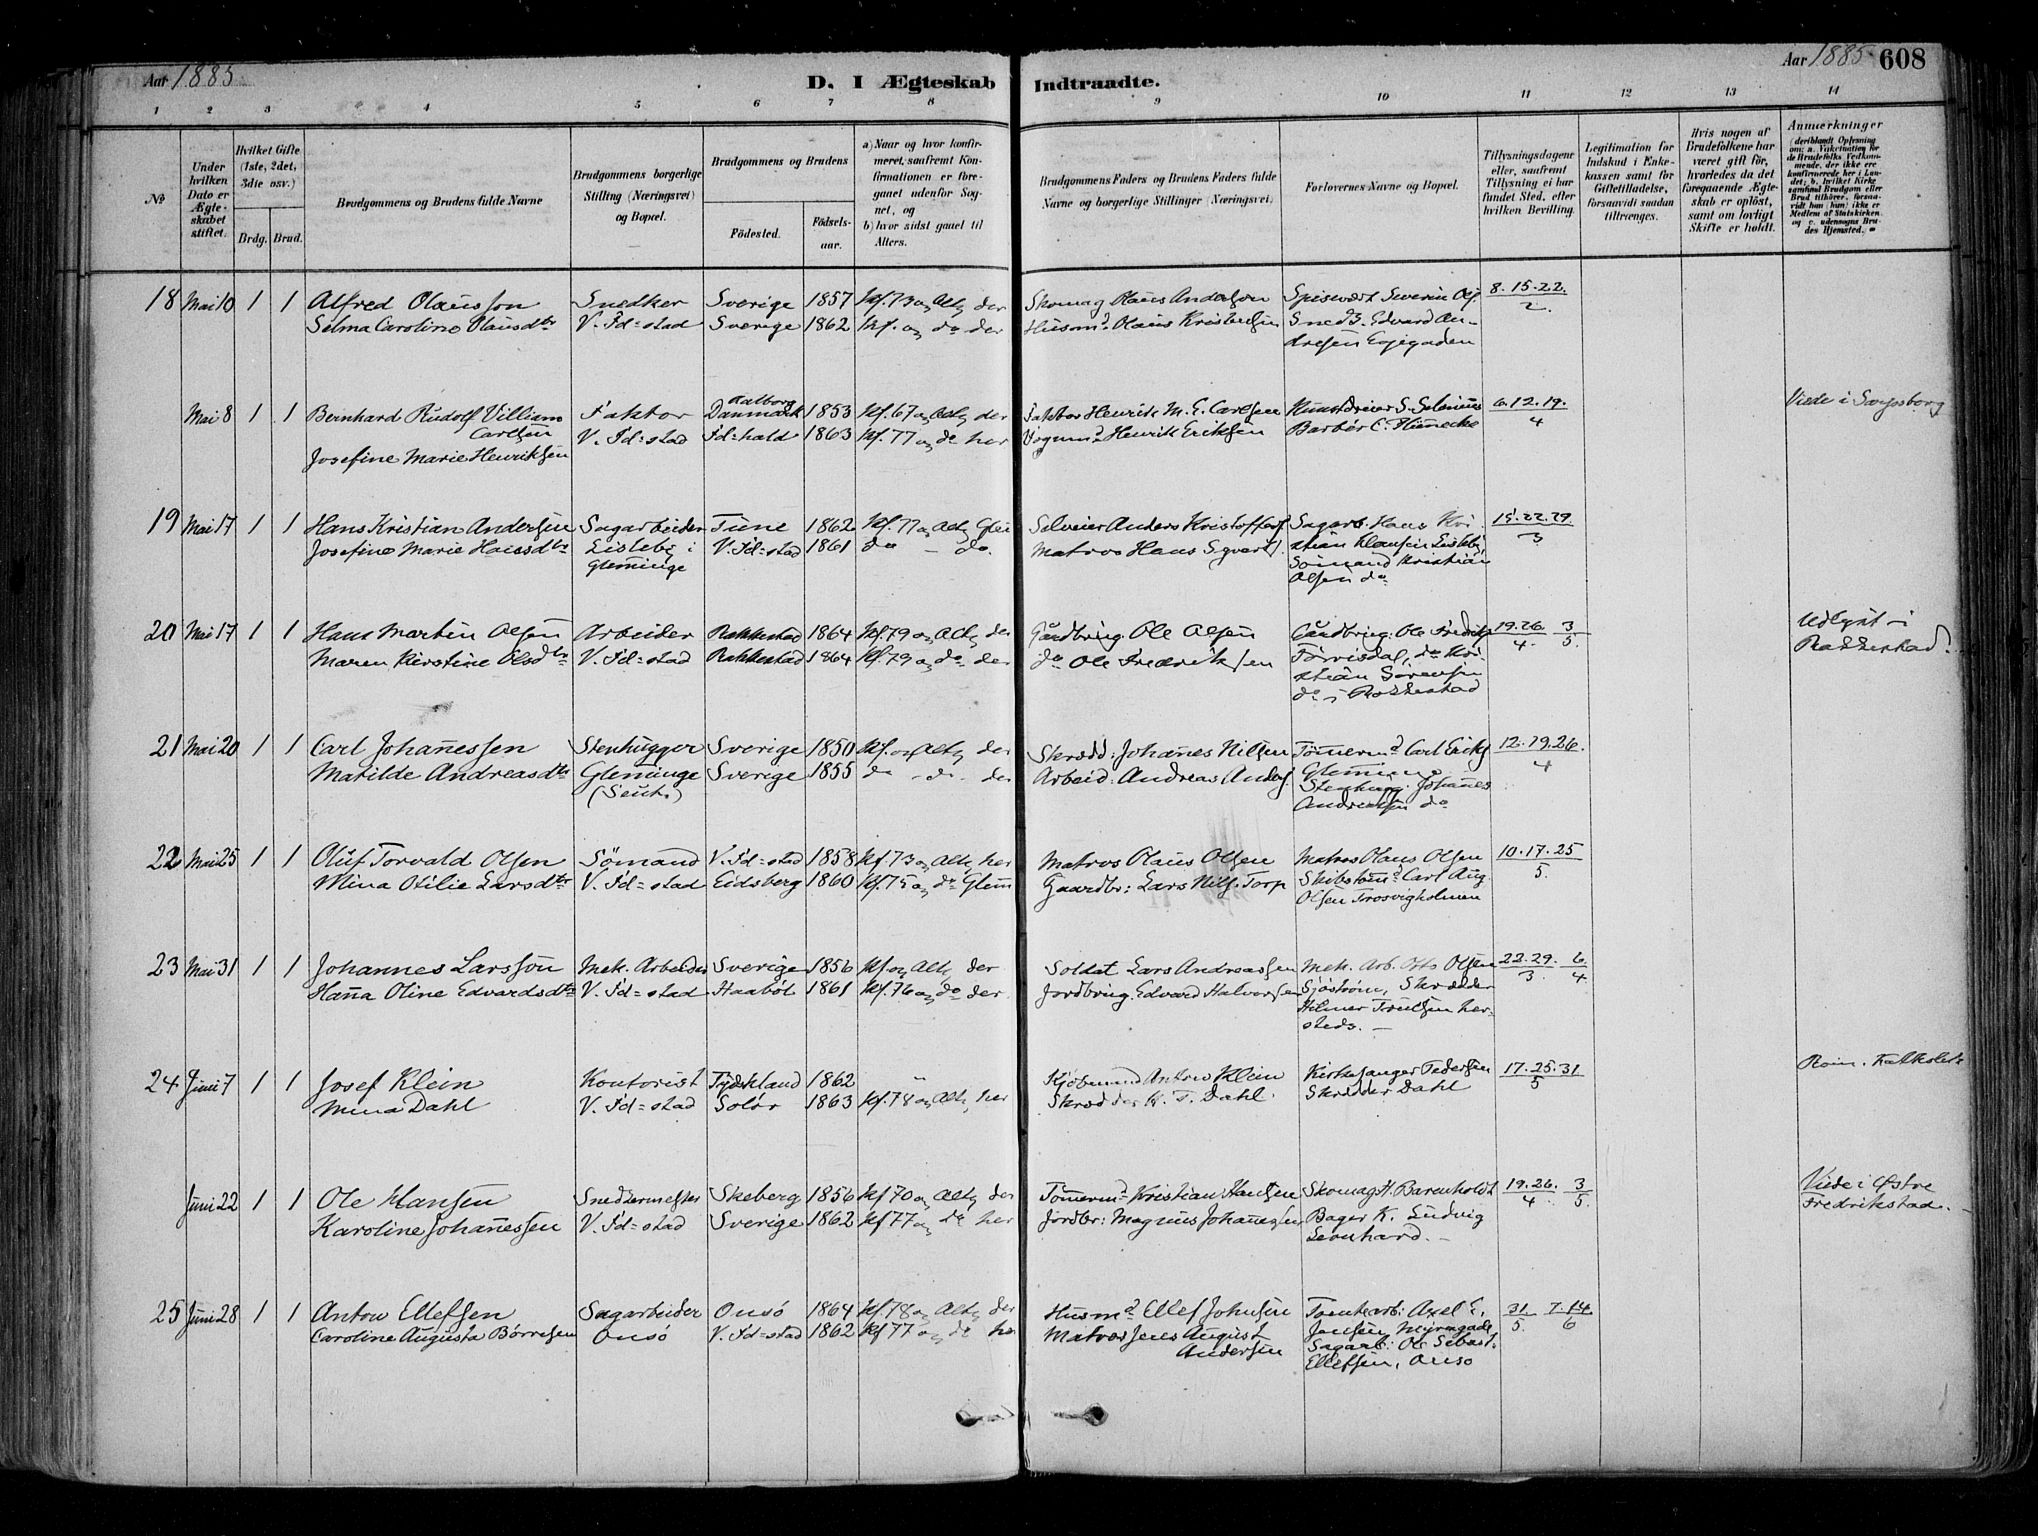 Aar 1885
D. I Ægteskab Indtraadte.
Aar 1885 608
1 2 3 4 5 6 7 8 9 10 11 12 13 14
№
Under hvilken Dato er Ægteskabet stiftet.
Hvilket Gifte (1ste, 2det, 3die osv.)
Brdg. Brud.
Brudgommens og Brudens fulde Navne
Brudgommens borgerlige Stilling (Næringsvei) og Bopæl.
Brudgommens og Brudens
Födested. Födselsaar.
a) Naar og hvor konfirmeret, saafremt Konfirmationen er foregaaet udenfor Sognet, og
b) hvor sidst gaaet til Alters.
Brudgommens Faders og Brudens Faders fulde Navne og borgerlige Stillinger (Næringsvei)
Forlovernes Navne og Bopæl.
Tillysningsdagene eller, saafremt Tillysning ei har fundet Sted, efter hvilken Bevilling.
Legitimation for Indskud i Enkekassen samt for Giftetilladelse, forsaavidt saadan tiltrænges.
Hvis nogen af Brudefolkene har været gift för, hvorledes da det foregaaende Ægteskab er oplöst, samt om lovligt Skifte er holdt.
Anmærkninger
(deriblandt Oplysning om: a. Vaksination for de Brudefolks Vedkommende, der ikke ere konfirmerede her i Landet; b. hvilket Kirkesamfund Brudgom eller Brud tilhörer, forsaavidt han (hun) ikke er Medlem af Statskirken og c. udensogns Brudes Hjemsted.
18 Mai 10 1 1 Alfred Olausson Snedker Sverige 1857 Kf. 73 og Altg der Skomag Olaus Anderson Spisevært Severin Ols. 8. 15. 22.
Selma Caroline Olausdtr V. Fd=stad Sverige 1862 Kf. og do der Husmd. Olaus Snedk. Edvard An- 2.
dresen
Mai 8 1 1 Bernhard Rudolf Villiam Faktor Aalborg Danmark 1853 Kf. 67 og Altg der Faktor Henrik M. E. Carlsen S. Selenius 6. 12. 19. Viede i Sarpsborg
Carlsen V. Fd=stad Fd=hald 1863 Kf. 77 og do her Henrik Eriksen Barbér C. 4
Josefine Marie Henriksen
19 Mai 17 1 1 Hans Kristian Andersen Sagarbeider Tune 1862 Kf. 77 og Altg Glem Selveier Anders Kristoffers. Sagarb. Hans Kri- 15. 22. 29
Josefine Marie Hansdtr Lisleby i V. Fd=stad 1861 do - do. Matros Hans Syverts. stian Lisleby 3
Gleminge Sömand Kristian
Olsen do
20 Mai 17 1 1 Hans Martin Olsen Arbeider Rakkestad 1864 Kf. 79 og Altg der Gårdbrug. Ole Olsen Gårdbrug: Ole Fredriks 19. 26. 3 Udlyst i
Maren Kirstine Olsdtr V. Fd=stad Rakkestad 1864 Kf. 79 og do der do Ole Fredriksen do Kri- 4. 5. Rakkestad.
stian Sörensen
do i Rakkestad
21 Mai 20 1 1 Carl Johanessen Stenhugger Sverige 1850 Kf. og Altg der Skrædd: Johanes Nilsen Tömermd Carl Eriks 12. 19. 26.
Matilde Andreasdtr Gleminge Sverige 1855 do - do. der Arbeid: Andreas Anders. 4
Stenhugg. Johanes
Andreasen do
22 Mai 25 1 1 Oluf Torvald Olsen Sömand V. Fd=stad 1858 Kf. 73 og Altg her Matros Olaus Olsen Matros Olaus Olsen 10. 17. 25
Mina Otilie Larsdtr V. Fd=stad Eidsberg 1860 Kf. 75 og do Glem Gaardbr: Lars Nils. Torp Skibstömd Carl Aug. 5.
Olsen Trosvigholmen
23 Mai 31 1 1 Johannes Larsson Mek. Arbeider Sverige 1856 Kf og Altg der Soldat Lars Andreassen Mek. Arb. Otto Olsen 22. 29. 6
Hana Oline Edvardsdtr V. Fd=stad Haaböl 1861 Kf. 76 og do der Jordbrug. Edvard Halvorsen Sjöström, Skrædder 3 4
Hilmer Truelsen her-
steds.
24 Juni 7 1 1 Josef Klein Kontorist Tydskland 1862 Kjöbmand Anton Klein Kirkesanger Pedersen 17. 25. 31 Rom. Katholik
Mina Dahl V. Fd=stad Solör 1863 Kf. 78 og Altg her Skrædder K. T. Dahl Skrædder Dahl 5
Juni 22 1 1 Ole Hansen Snedkermester Skeberg 1856 Kf 70 og Altg der Tömermd Kristian Hansen Skomag H. Barenholdt 19. 26. 3 Viede i Østre
Karoline Johanessen V. Fd=stad Sverige 1862 Kf 77 og do her Jordbr: Magnus Johanessen Bager K. Ludvig 4 5. Fredrikstad.
Leonhard.
25 Juni 28 1 1 Anton Ellefsen Sagarbeider Onsö 1864 Kf 78 og Altg der Husmd Ellef Johnsen Tomtearb: Axel E. 31. 7. 14
Caroline Augusta Börresen Onsö V. Fd=stad 1862 Kf 77 og do her Matros Jens August Jensen Myrengade 5. 6
Andersen Sagarb: Ole Sebast.
Ellefsen, Onsö